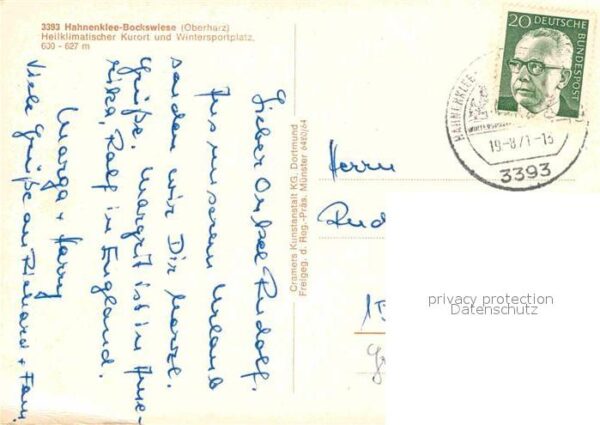 3393 Hahnenklee-Bockswiese (Oberharz)
Heilklimatischer Kurort und Wintersportplatz,
600 - 627 m
Lieber Onkel Rudolf.
Aus unserem Urlaub
senden wir Dir herzl.
Grüße. Margrit ist in Ame-
rika, Ralf in England.
Marga + Harry
Viele Grüße an Richard + Fam.
Cramers Kunstanstalt KG, Dortmund
Freigeg. d. Reg.-Präs. Münster 6480/64
20 DEUTSCHE BUNDESPOST
HAHNENKLEE
19-8.71-13
3393
Herrn
Rud
privacy protection
Datenschutz